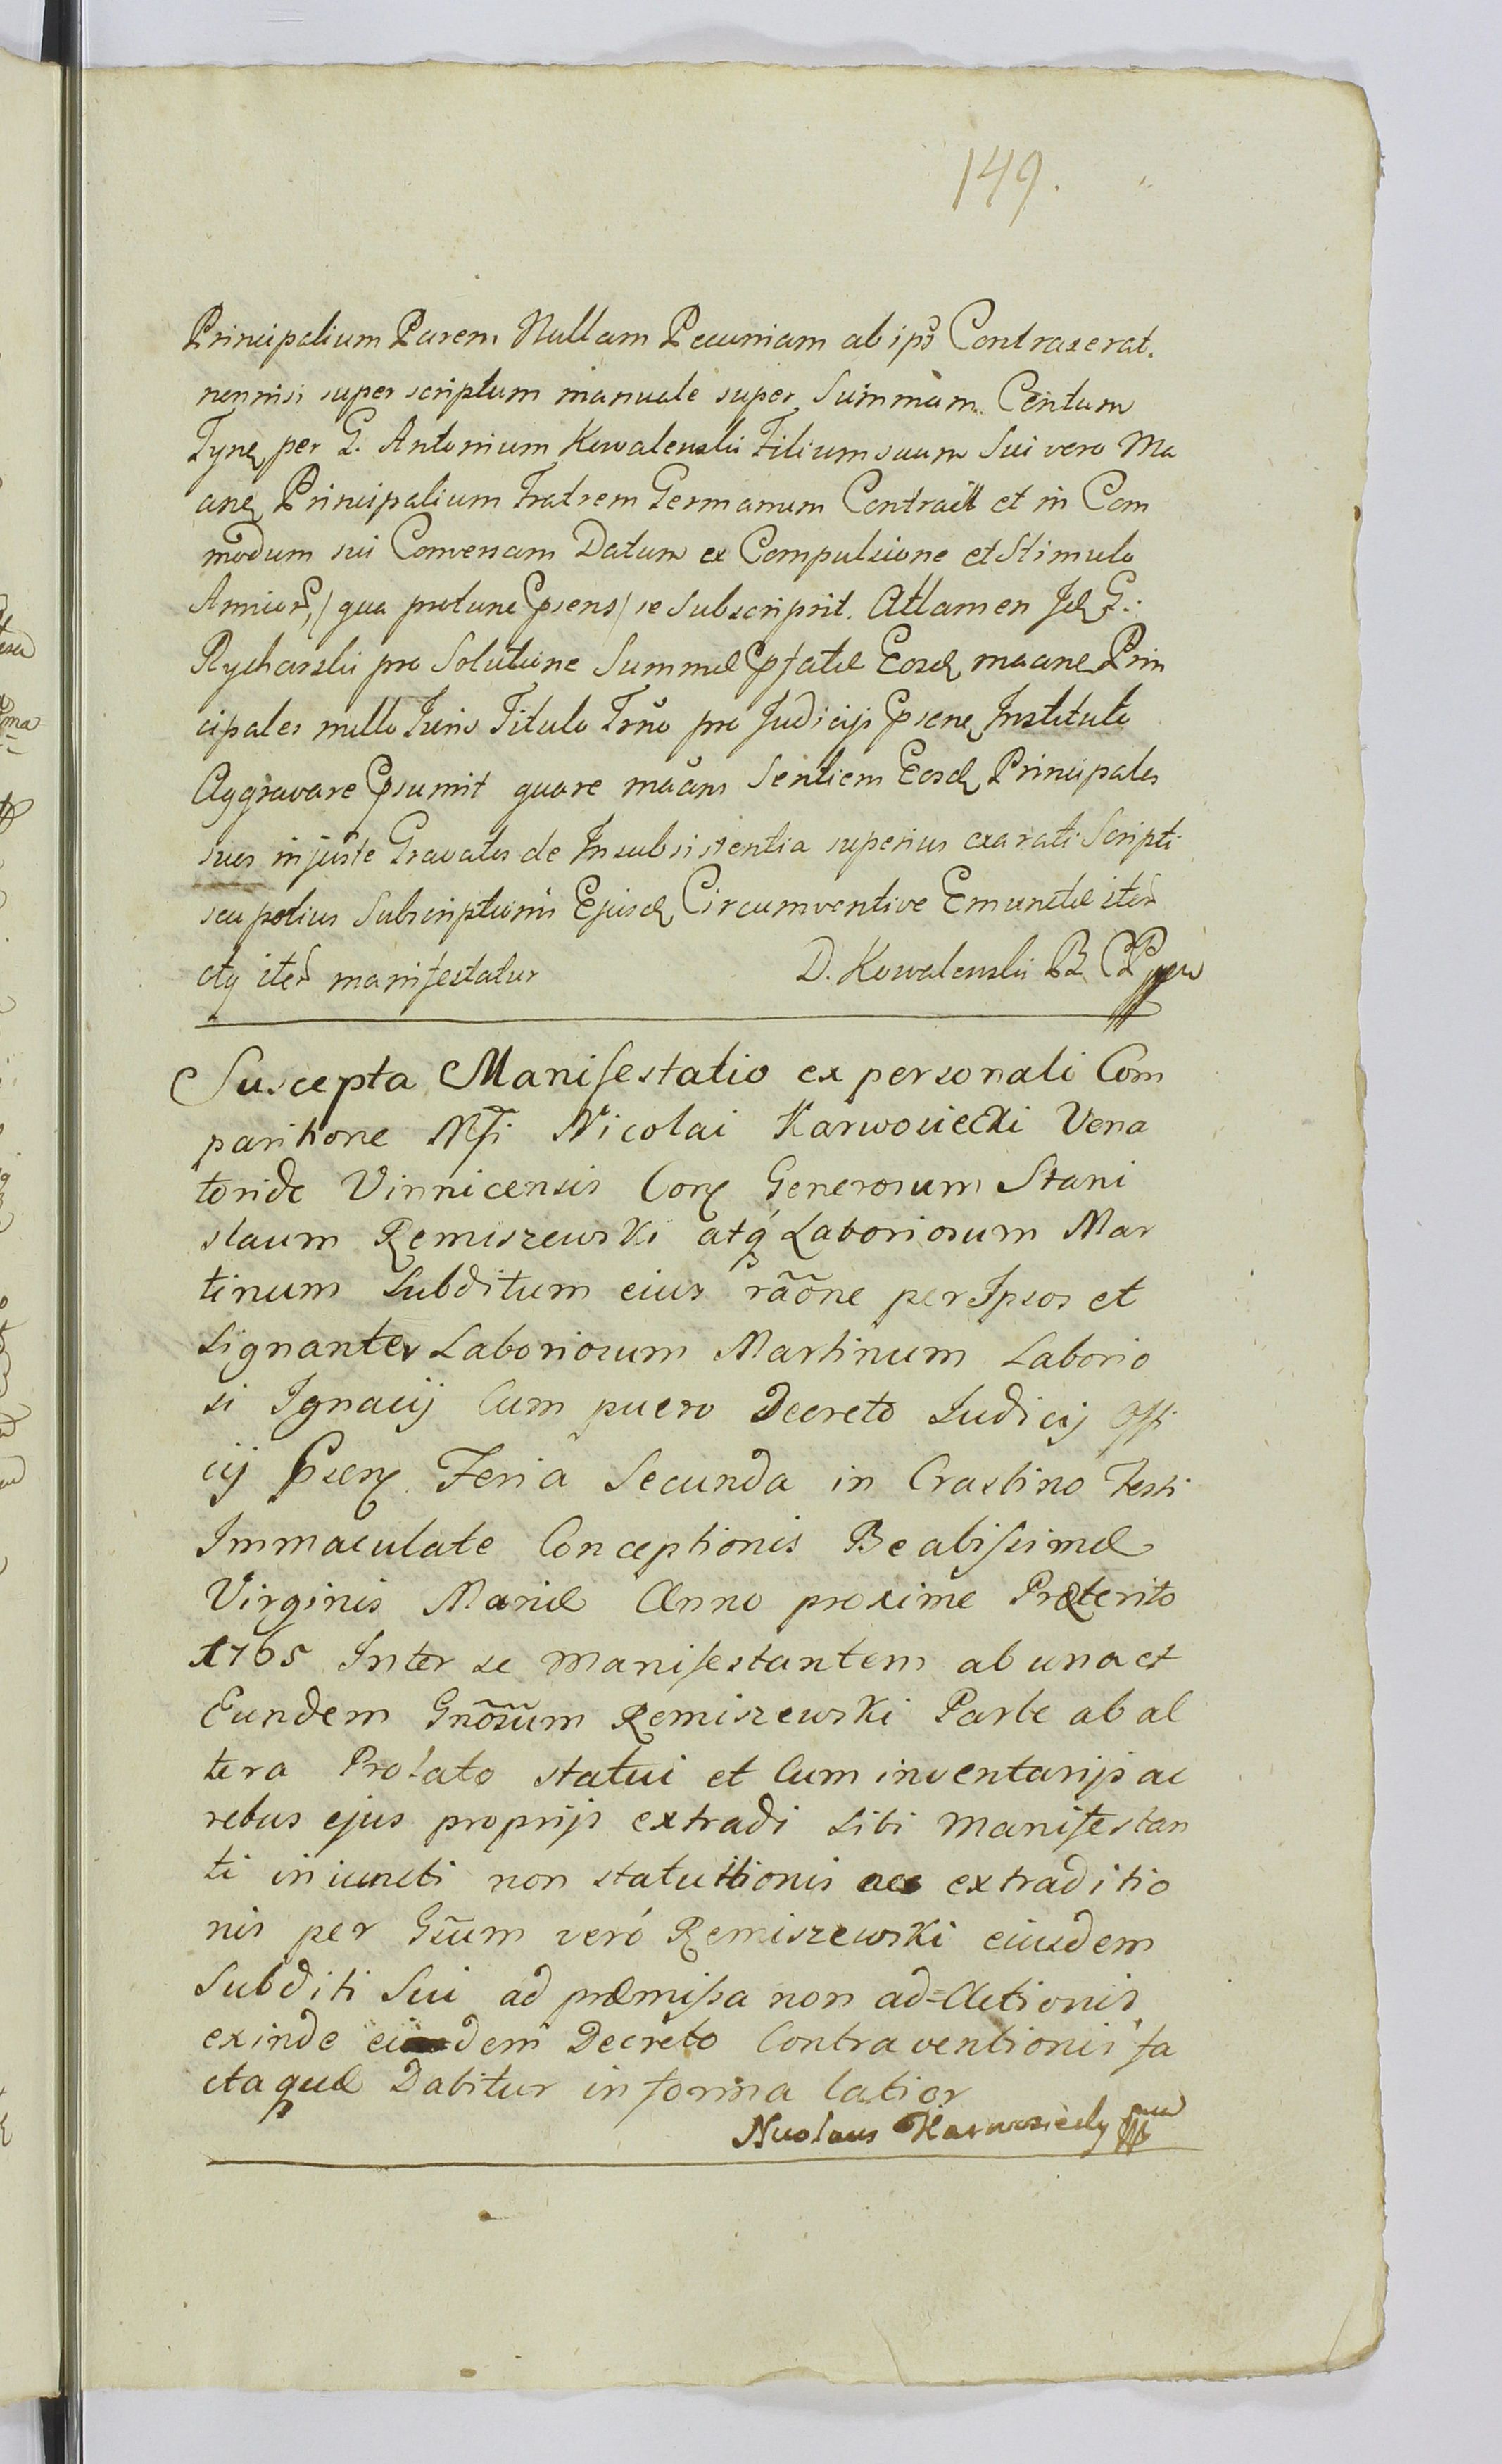 149.
Principalium Parem Nullam Pecuniam ab ips Contraxerat.
nonnisi super scriptum manuale super Summam Centum
Tynę per G. Antonium Kowalewski Filium suum Sui vero Ma
anę Principalium Fratrem Germanum Contraxit et in Com
modum sui Conversam Datum ex Compulsione et Stimulo
(qua protunc Psens) se Subscripsit. Attamen Id G.
Rycharski pro Solutione Summæ Pfatæ Eosd maanę Prin
cipales nullo Iuris Titulo Trno pro Judicijs Psenę Instituto
Aggravare Psumit quare maans Sentiens Eosd Principales
suos injuste Gravatos de Insubsistentia superius exarati Scripti
seu potius Subscriptionis Ejusd Circumventive Emunctæ iter
atq iter manifestatur D. Kowalewski
Suscepta Manifestatio ex personali Com
paritione Mfi Nicolai Karwosiecki Vena
toride Vinnicensis Corę Generosum Stani
slaum Remiszewski atq Laboriosum Mar
tinum Subditum eius rãõne per Ipsos et
Signanter Laboriosum Martinum Laborio
si Ignacij Cum puero Decreto Iudicij Offi
cij Psenę Feria Secunda in Crastino Festi
Immaculate Conceptionis Beatissimæ
Virginis Mariæ Anno proxime Præterito
1765 Inter se Manifestantem ab una et
Eundem Gnõsum Remiszewski Parte ab al
tera Prolato statui et Cum inventarijs ac
rebus ejus proprijs extradi sibi Manifestan
ti iniuncti non statuitionis ac extraditio
nis per Gsum veró Remiszewski eiusdem
Subditi Sui ad præmissa non ad=Actionis
exinde eidem Decreto Contraventionis fa
ctaquæ Dabitur in forma latior
Nicolaus Karwosiecky